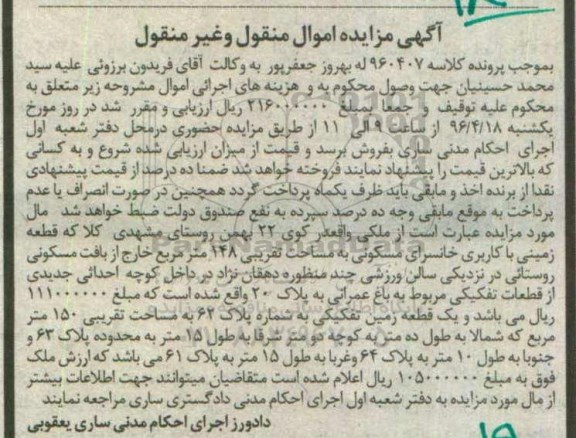 ۱۸
آگهی مزایده اموال منقول وغیر منقول
بموجب پرونده کلاسه ۹۶۰۴۰۷ له بهروز جعفرپور به وکالت آقای فریدون برزوئی علیه سید
محمد حسینیان جهت وصول محکوم به و هزینه های اجرائی اموال مشروحه زیر متعلق به
محکوم علیه توقیف و جمعا به مبلغ ۲۱۶۰۰۰۰۰۰ ریال ارزیابی و مقرر شد در روز مورخ
یکشنبه ۹۶/۴/۱۸ از ساعت ۹ الی ۱۱ از طریق مزایده حضوری درمحل دفتر شعبه اول
اجرای احکام مدنی ساری بفروش برسد و قیمت از میزان ارزیابی شده شروع و به کسانی
که بالاترین قیمت را پیشنهاد نمایند فروخته خواهد شد ضمنا ده درصد از قیمت پیشنهادی
نقدا از برنده اخذ و مابقی باید ظرف یکماه پرداخت گردد همچنین در صورت انصراف یا عدم
پرداخت به موقع مابقی وجه ده درصد سپرده به نفع صندوق دولت ضبط خواهد شد مال
مورد مزایده عبارت است از ملکی واقعدر کوی ۲۲ بهمن روستای مشهدی کلا که قطعه
زمینی با کاربری خانسرای مسکونی به مساحت تقریبی ۱۴۸ متر مربع خارج از بافت مسکونی
روستائی در نزدیکی سالن ورزشی چند منظوره دهقان نژاد در داخل کوچه احداثی جدیدی
از قطعات تفکیکی مربوط به باغ عمرانی به پلاک ۲۰ واقع شده است که مبلغ ۱۱۱۰۰۰۰۰۰
ریال می باشد و یک قطعه زمین تفکیکی به شماره پلاک ۶۲ به مساحت تقریبی ۱۵۰ متر
مربع که شمالا به طول ده متر به کوچه دو متر شرقا به طول ۱۵ متر به محدوده پلاک ۶۳ و
جنوبا به طول ۱۰ متر به پلاک ۶۴ وغربا به طول ۱۵ متر به پلاک ۶۱ می باشد که ارزش ملک
فوق به مبلغ ۱۰۵۰۰۰۰۰۰ ریال اعلام شده است متقاضیان میتوانند جهت اطلاعات بیشتر
از مال مورد مزایده به دفتر شعبه اول اجرای احکام مدنی دادگستری ساری مراجعه نمایند
دادورز اجرای احکام مدنی ساری یعقوبی